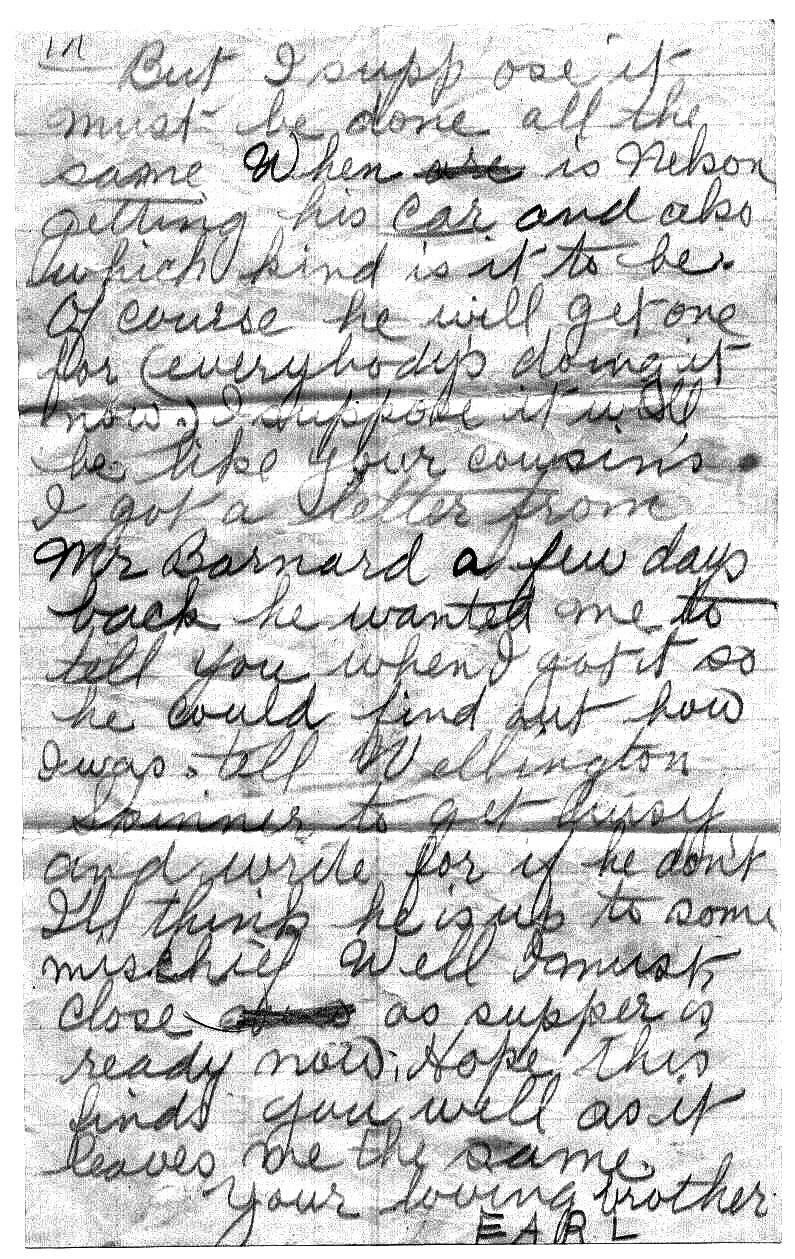 But I suppose it
must be done all the
same When are is Nelson
getting his car and also
which kind is it to be.
Of course he will get one
for (everybody's doing it
now.) I suppose it will
be like your cousin's.
I got a letter from
Mr Barnard a few days
back he wanted me to
tell you when I got it so
he could find out how
I was. tell Wellington
Spinner to get busy
and write for if he don't
I'll think he is up to some
mischief Well I must
close as supper is
ready now. Hope this
finds you well as it
leaves me the same.
Your loving brother
EARL